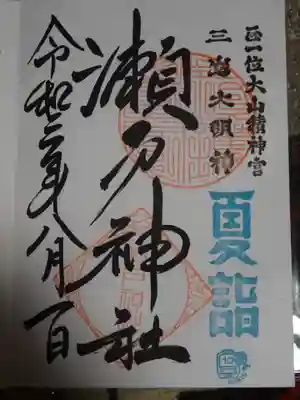 正一位大山積神宮
三島大明神
夏詣
瀬戸神社
令和二年八月一日